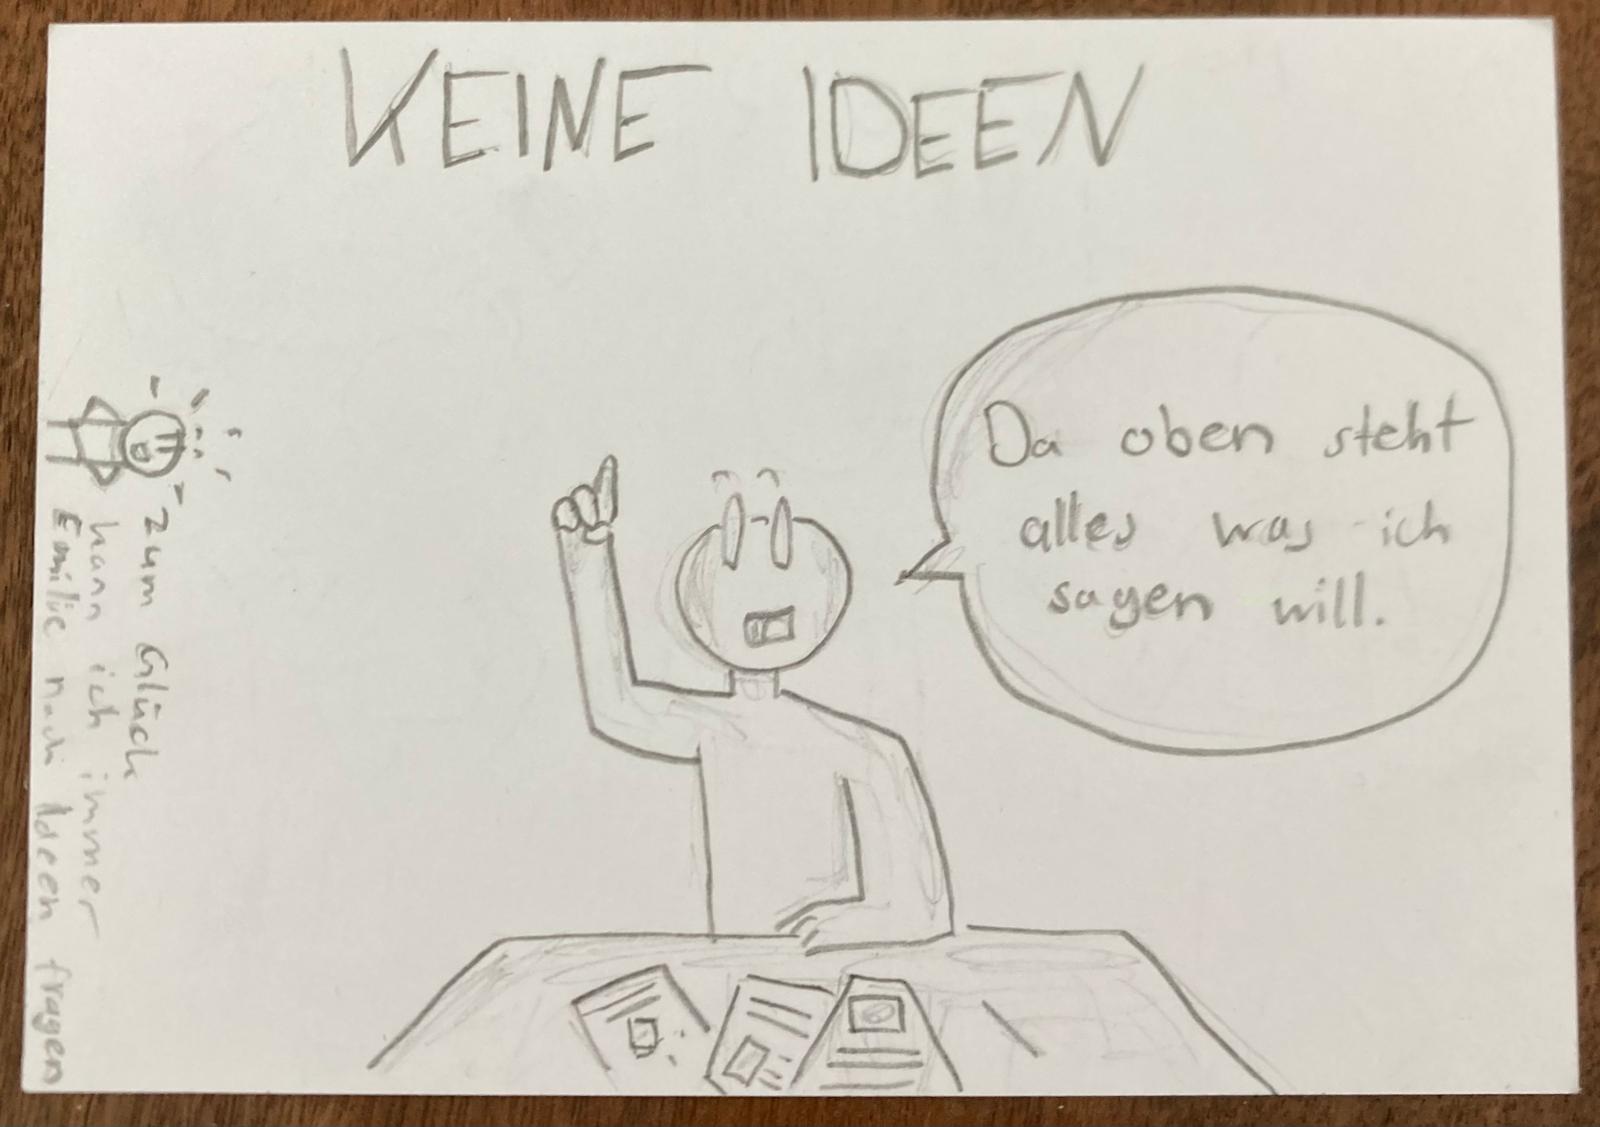 KEINE IDEEN
Da oben steht
alles was ich
sagen will.
Zum Glück
kann ich immer
Emilie nach Ideen fragen